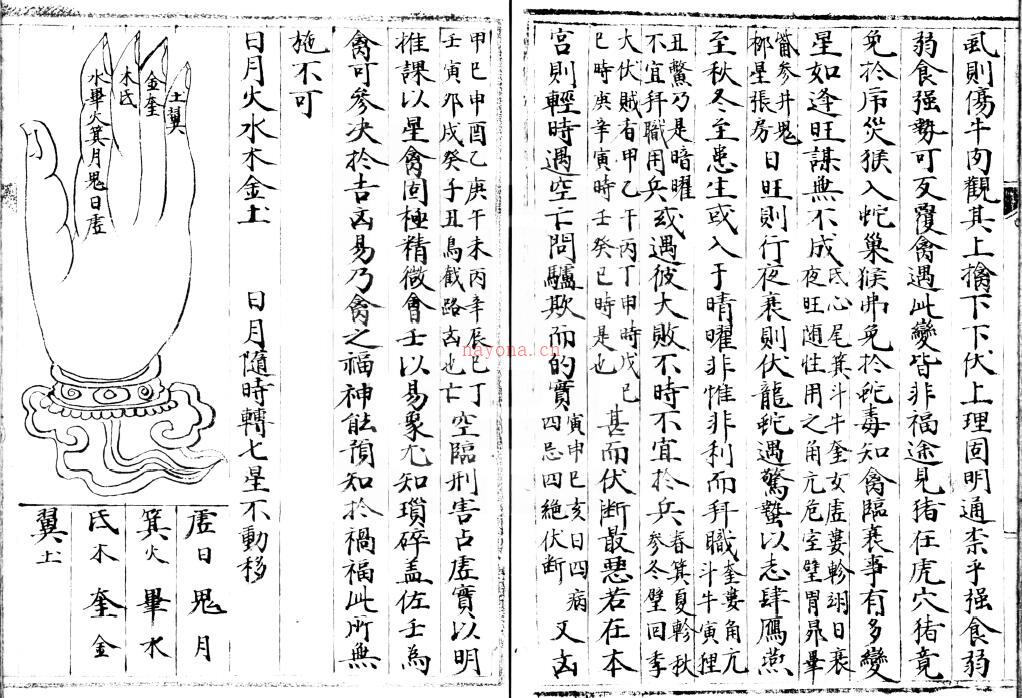 虱則傷牛肉觀其上擒下下伏上理固明通柰乎强食弱
弱食强勢可反覆禽遇此變皆非福途見猪在虎穴猪竟
免於灾猴入蛇巢猴弗免於蛇毒知禽臨衰事有多變
星如逢旺謀無不成
氐心尾箕斗牛奎女虚婁軫翊日衰
夜旺随性用之角亢危室壁胃昴畢
觜参井鬼
柳星張房
日旺則行夜衰則伏龍蛇遇驚蟄以志肆鷹燕
至秋冬至患生或入于晴曜非惟非利而拜職
奎婁角亢
斗牛寅狸
丑鱉乃是暗曜
不宜拜職用兵
或遇彼大敗不時不宜於兵
春箕夏軫秋
参冬壁回季
大伏賊者甲乙午丙丁申時戊己
巳時庚辛寅時壬癸巳時是也
甚而伏断最恶若在本
宫則輕時遇空亡問驢欺而的實
寅申巳亥日四病
四忌四絶伏断
又吉
甲巳申酉乙庚午未丙辛辰巳丁
壬寅夘戌癸子丑鳥截路吉也亡
空臨刑害占虚實以明
推課以星禽固極精微會壬以易象尤知瑣碎盖佐壬為
禽可參决於吉凶易乃禽之福神能預知於禍福此所無
施不可
日月火水木金土
日月隨時轉七星不動移
土翼
金奎
木氐
水畢火箕月鬼日虚
虚日鬼月
箕火畢水
氐木奎金
翼土
nayona.cn